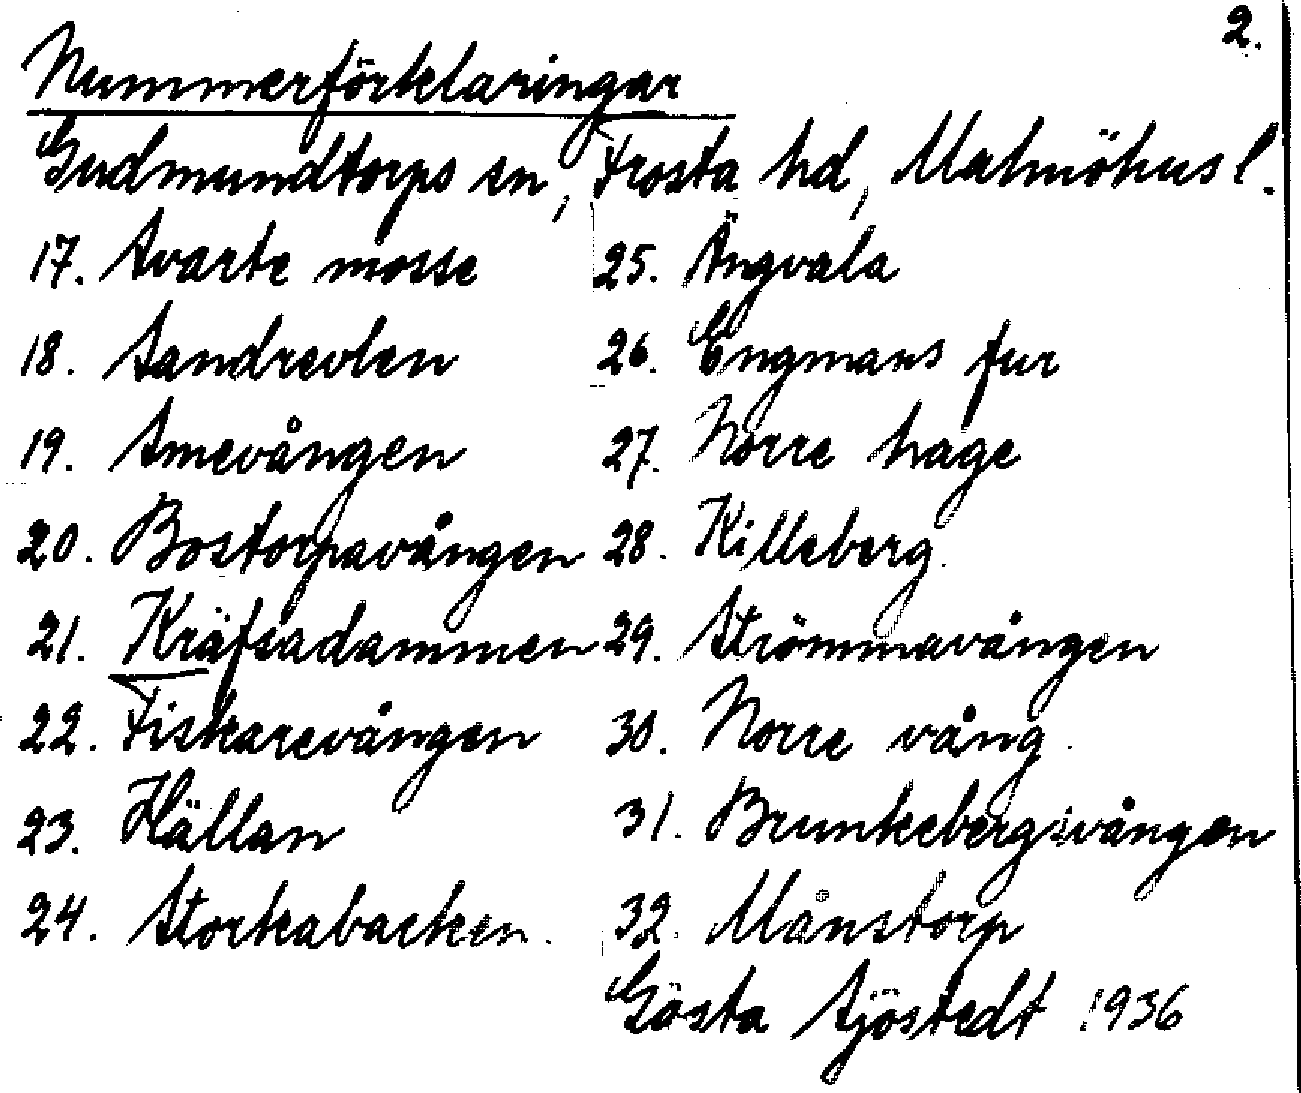 2.
Nummerförklaringar
Gudmundtorps sn, Frosta hd, Malmöhus l.
17. Svarte mosse
18. Sandrevlen
19. Smevången
20. Bostorpavången
21. Kräfsadammen
22. Fiskarevången
23. Hällan
24. Storkabacken.
25. Ängvala
26. Engmans fur
27. Norre hage
28. Killeberg.
29. Strömmavången
30. Norre vång.
31. Brunkebergsvången
32. Månstorp
Gösta Sjöstedt 1936